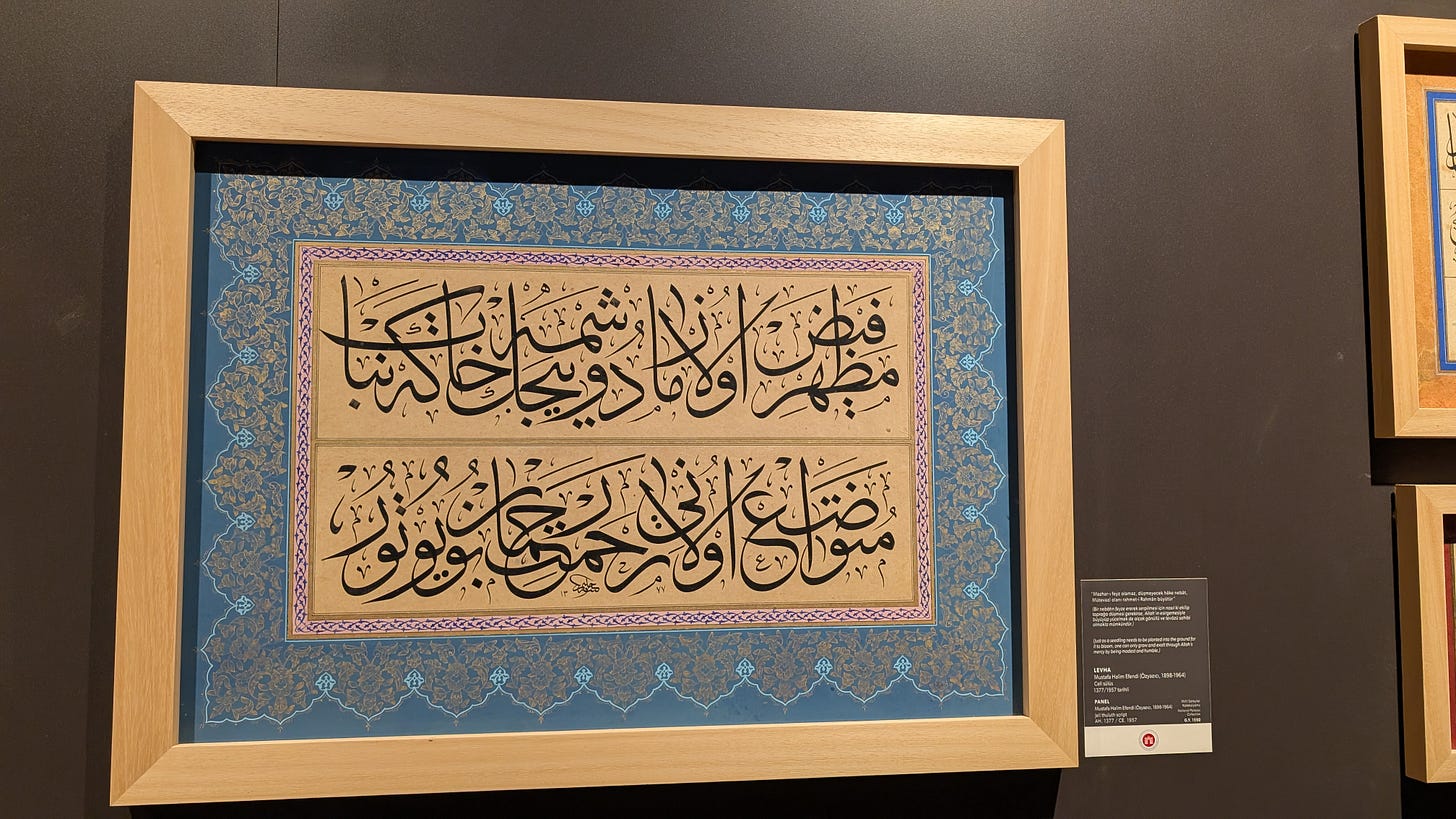 مظهر فيض اولاماز دوشمیيجك خاكه نبات
متواضع اولانی رحمت رحمان بویوتور
١٣٧٧
"Mazhar-ı feyz olamaz, düşmeyecek hâke nebât,
Mütevazi olanı rahmet-i Rahmân büyütür"
(Bir nebâtın feyze ererek serpilmesi için nasıl ki ekilip
toprağa düşmesi gerekirse, Allah'ın esirgemesiyle
büyüyüp yücelmek de alçak gönüllü ve tevâzu sahibi
olmakla mümkündür.)
(Just as a seedling needs to be planted into the ground for
it to bloom, one can only grow and exalt through Allah's
mercy by being modest and humble.)
LEVHA
Mustafa Halim Efendi (Özyazıcı, 1898-1964)
Celî sülüs
1377/1957 tarihli
PANEL
Mustafa Halim Efendi (Özyazıcı, 1898-1964)
Jeli thuluth script
AH. 1377 / CE. 1957
Milli Saraylar
Koleksiyonu
National Palaces
Collection